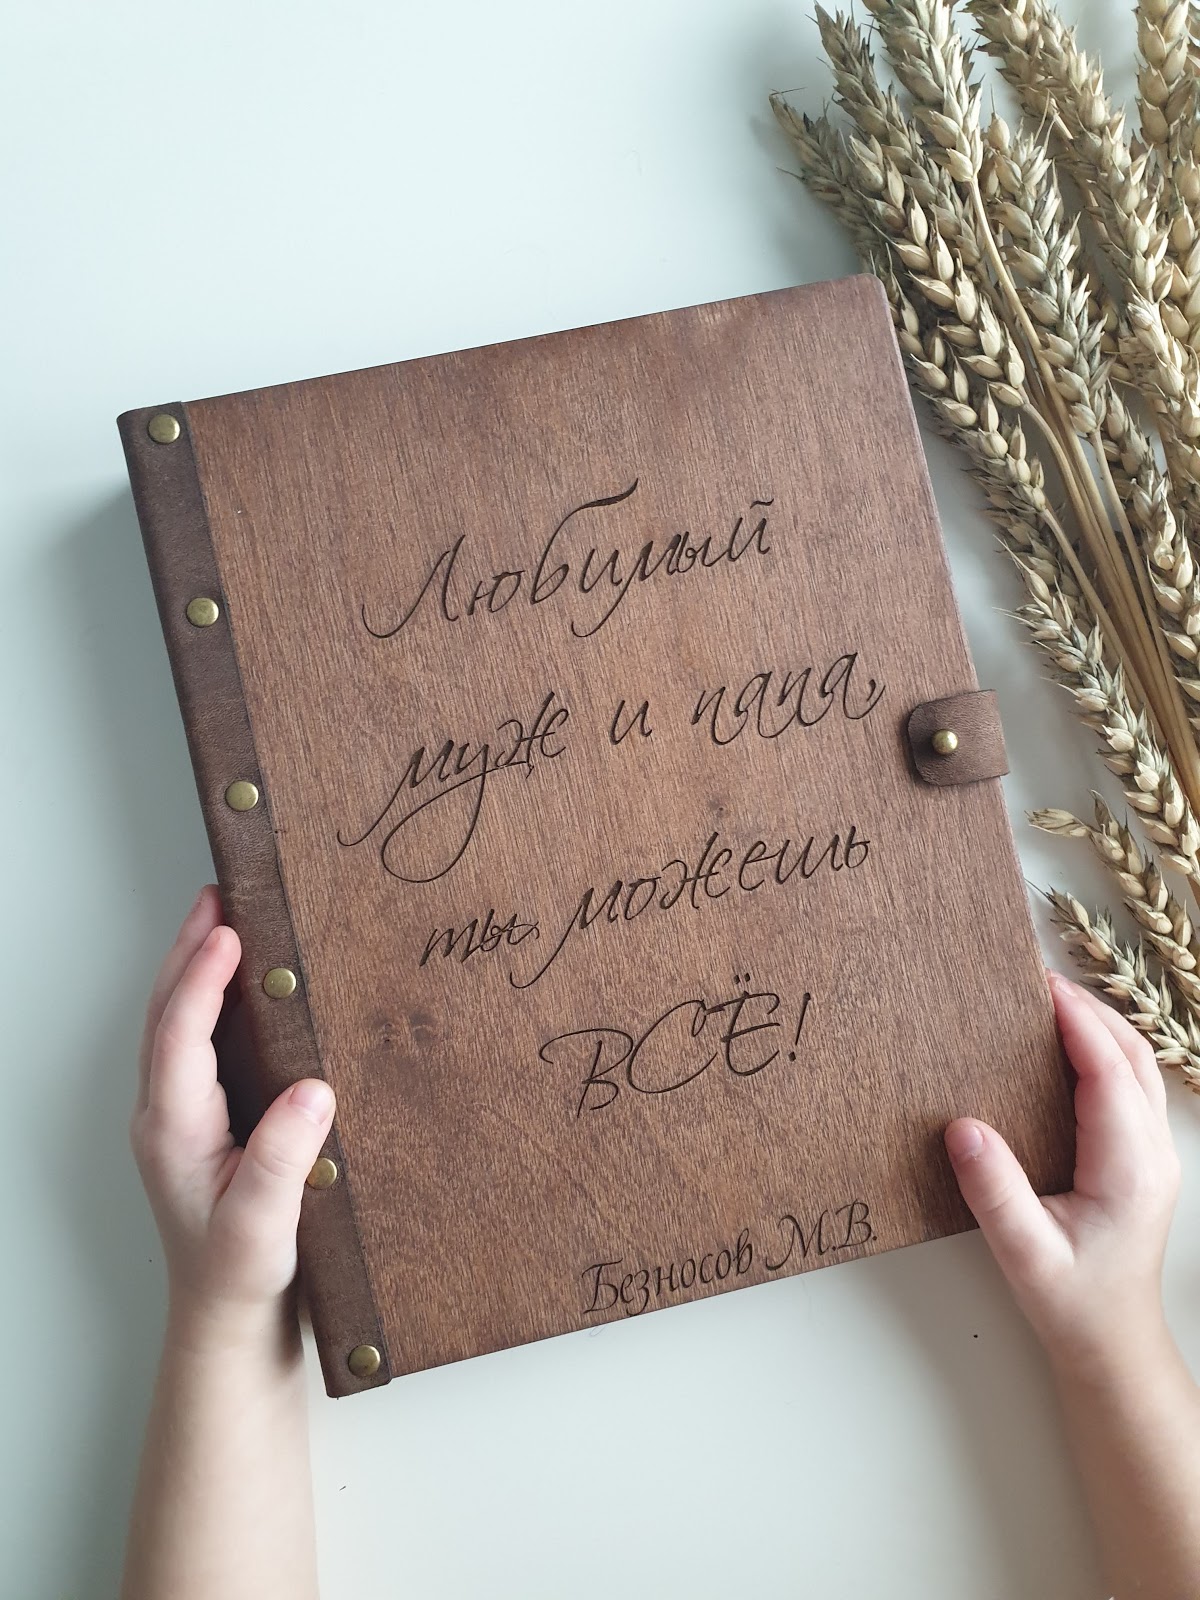 Любимый
муж и папа,
ты можешь
ВСЁ!
Безносов М.В.